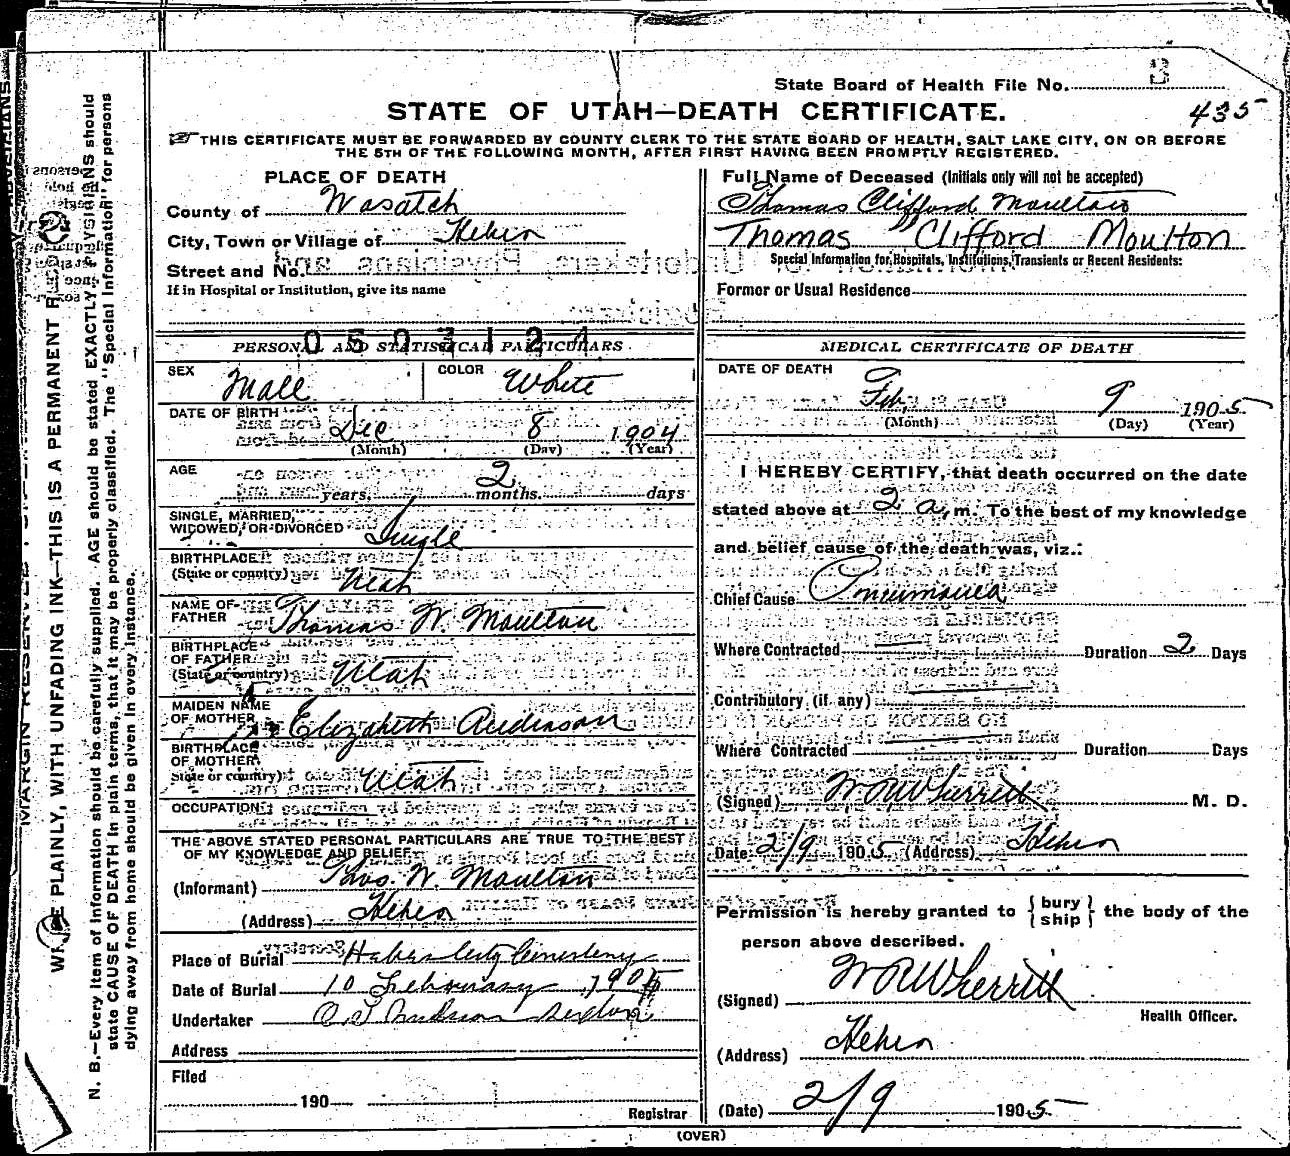 State Board of Health File No. 3
435
STATE OF UTAH—DEATH CERTIFICATE.
THIS CERTIFICATE MUST BE FORWARDED BY COUNTY CLERK TO THE STATE BOARD OF HEALTH, SALT LAKE CITY, ON OR BEFORE
THE 5TH OF THE FOLLOWING MONTH, AFTER FIRST HAVING BEEN PROMPTLY REGISTERED.
PLACE OF DEATH
County of Wasatch
City, Town or Village of Heber
Street and No.
If in Hospital or Institution, give its name
Full Name of Deceased (Initials only will not be accepted)
Thomas Clifford Moulton
Thomas Clifford Moulton
Special Information for Hospitals, Institutions, Transients or Recent Residents:
Former or Usual Residence
PERSONAL AND STATISTICAL PARTICULARS
SEX Male COLOR White
DATE OF BIRTH Dec 8 1904
(Month) (Day) (Year)
AGE years, 2 months. days
SINGLE, MARRIED,
WIDOWED, OR DIVORCED Single
BIRTHPLACE
(State or country) Utah
NAME OF
FATHER Thomas W. Moulton
BIRTHPLACE
OF FATHER
(State or country) Utah
MAIDEN NAME
OF MOTHER Elizabeth Anderson
BIRTHPLACE
OF MOTHER
State or country) Utah
OCCUPATION
THE ABOVE STATED PERSONAL PARTICULARS ARE TRUE TO THE BEST
OF MY KNOWLEDGE AND BELIEF.
(Informant) Thos. W. Moulton
(Address) Heber
Place of Burial Heber City Cemetery
Date of Burial 10 February 1905
Undertaker Anderson Sexton
Address
Filed
190
Registrar
MEDICAL CERTIFICATE OF DEATH
DATE OF DEATH
Feb, 9 1905
(Month) (Day) (Year)
I HEREBY CERTIFY, that death occurred on the date
stated above at 2 a, m. To the best of my knowledge
and belief cause of the death was, viz.:
Chief Cause Pneumonia
Where Contracted Duration 2 Days
Contributory (if any)
Where Contracted Duration Days
(Signed) W R Wherritt M. D.
Date 2/9 1905 (Address) Heber
Permission is hereby granted to { bury
ship } the body of the
person above described.
(Signed) W R Wherritt
Health Officer.
(Address) Heber
(Date) 2/9 1905
(OVER)
WRITE PLAINLY, WITH UNFADING INK—THIS IS A PERMANENT RECORD
N. B.—Every item of information should be carefully supplied. AGE should be stated EXACTLY. PHYSICIANS should
state CAUSE OF DEATH in plain terms, that it may be properly classified. The "Special Information" for persons
dying away from home should be given in every instance.